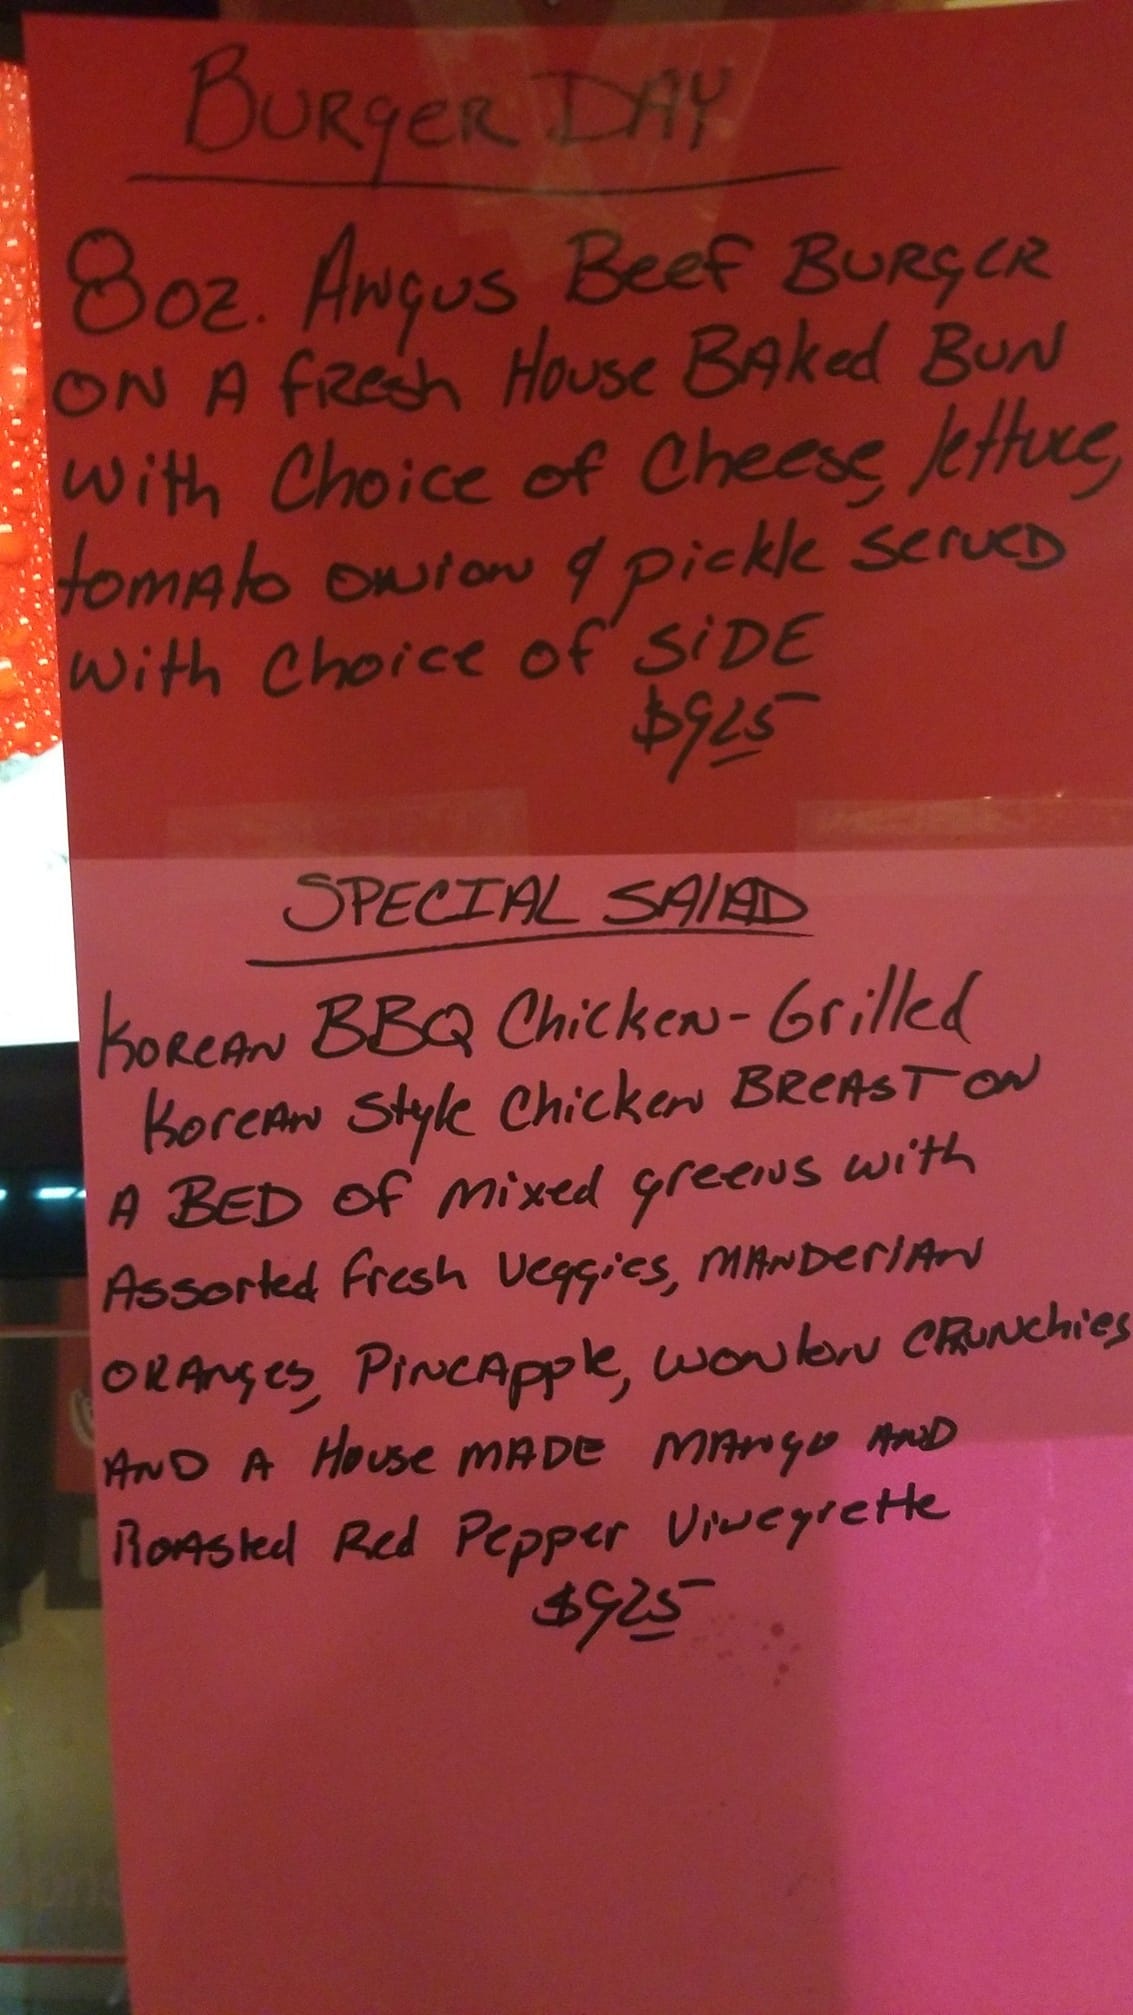 BURGER DAY
8oz. ANGUS Beef BURGER
ON A fresh House BAked BUN
with Choice of Cheese, lettuce,
tomAto onion & pickle serveD
with choice of SiDE
$9.25
SPECIAL SAlAD
KOREAN BBQ Chicken-Grilled
KoreAN Style Chicken BREAST ON
A BED of mixed greens with
Assorted fresh Veggies, MANDeriAN
ORANges, PiNeApple, wonton CRunchies
AND A House MADE MANgo AND
ROAsted Red Pepper Vinegrette
$9.25